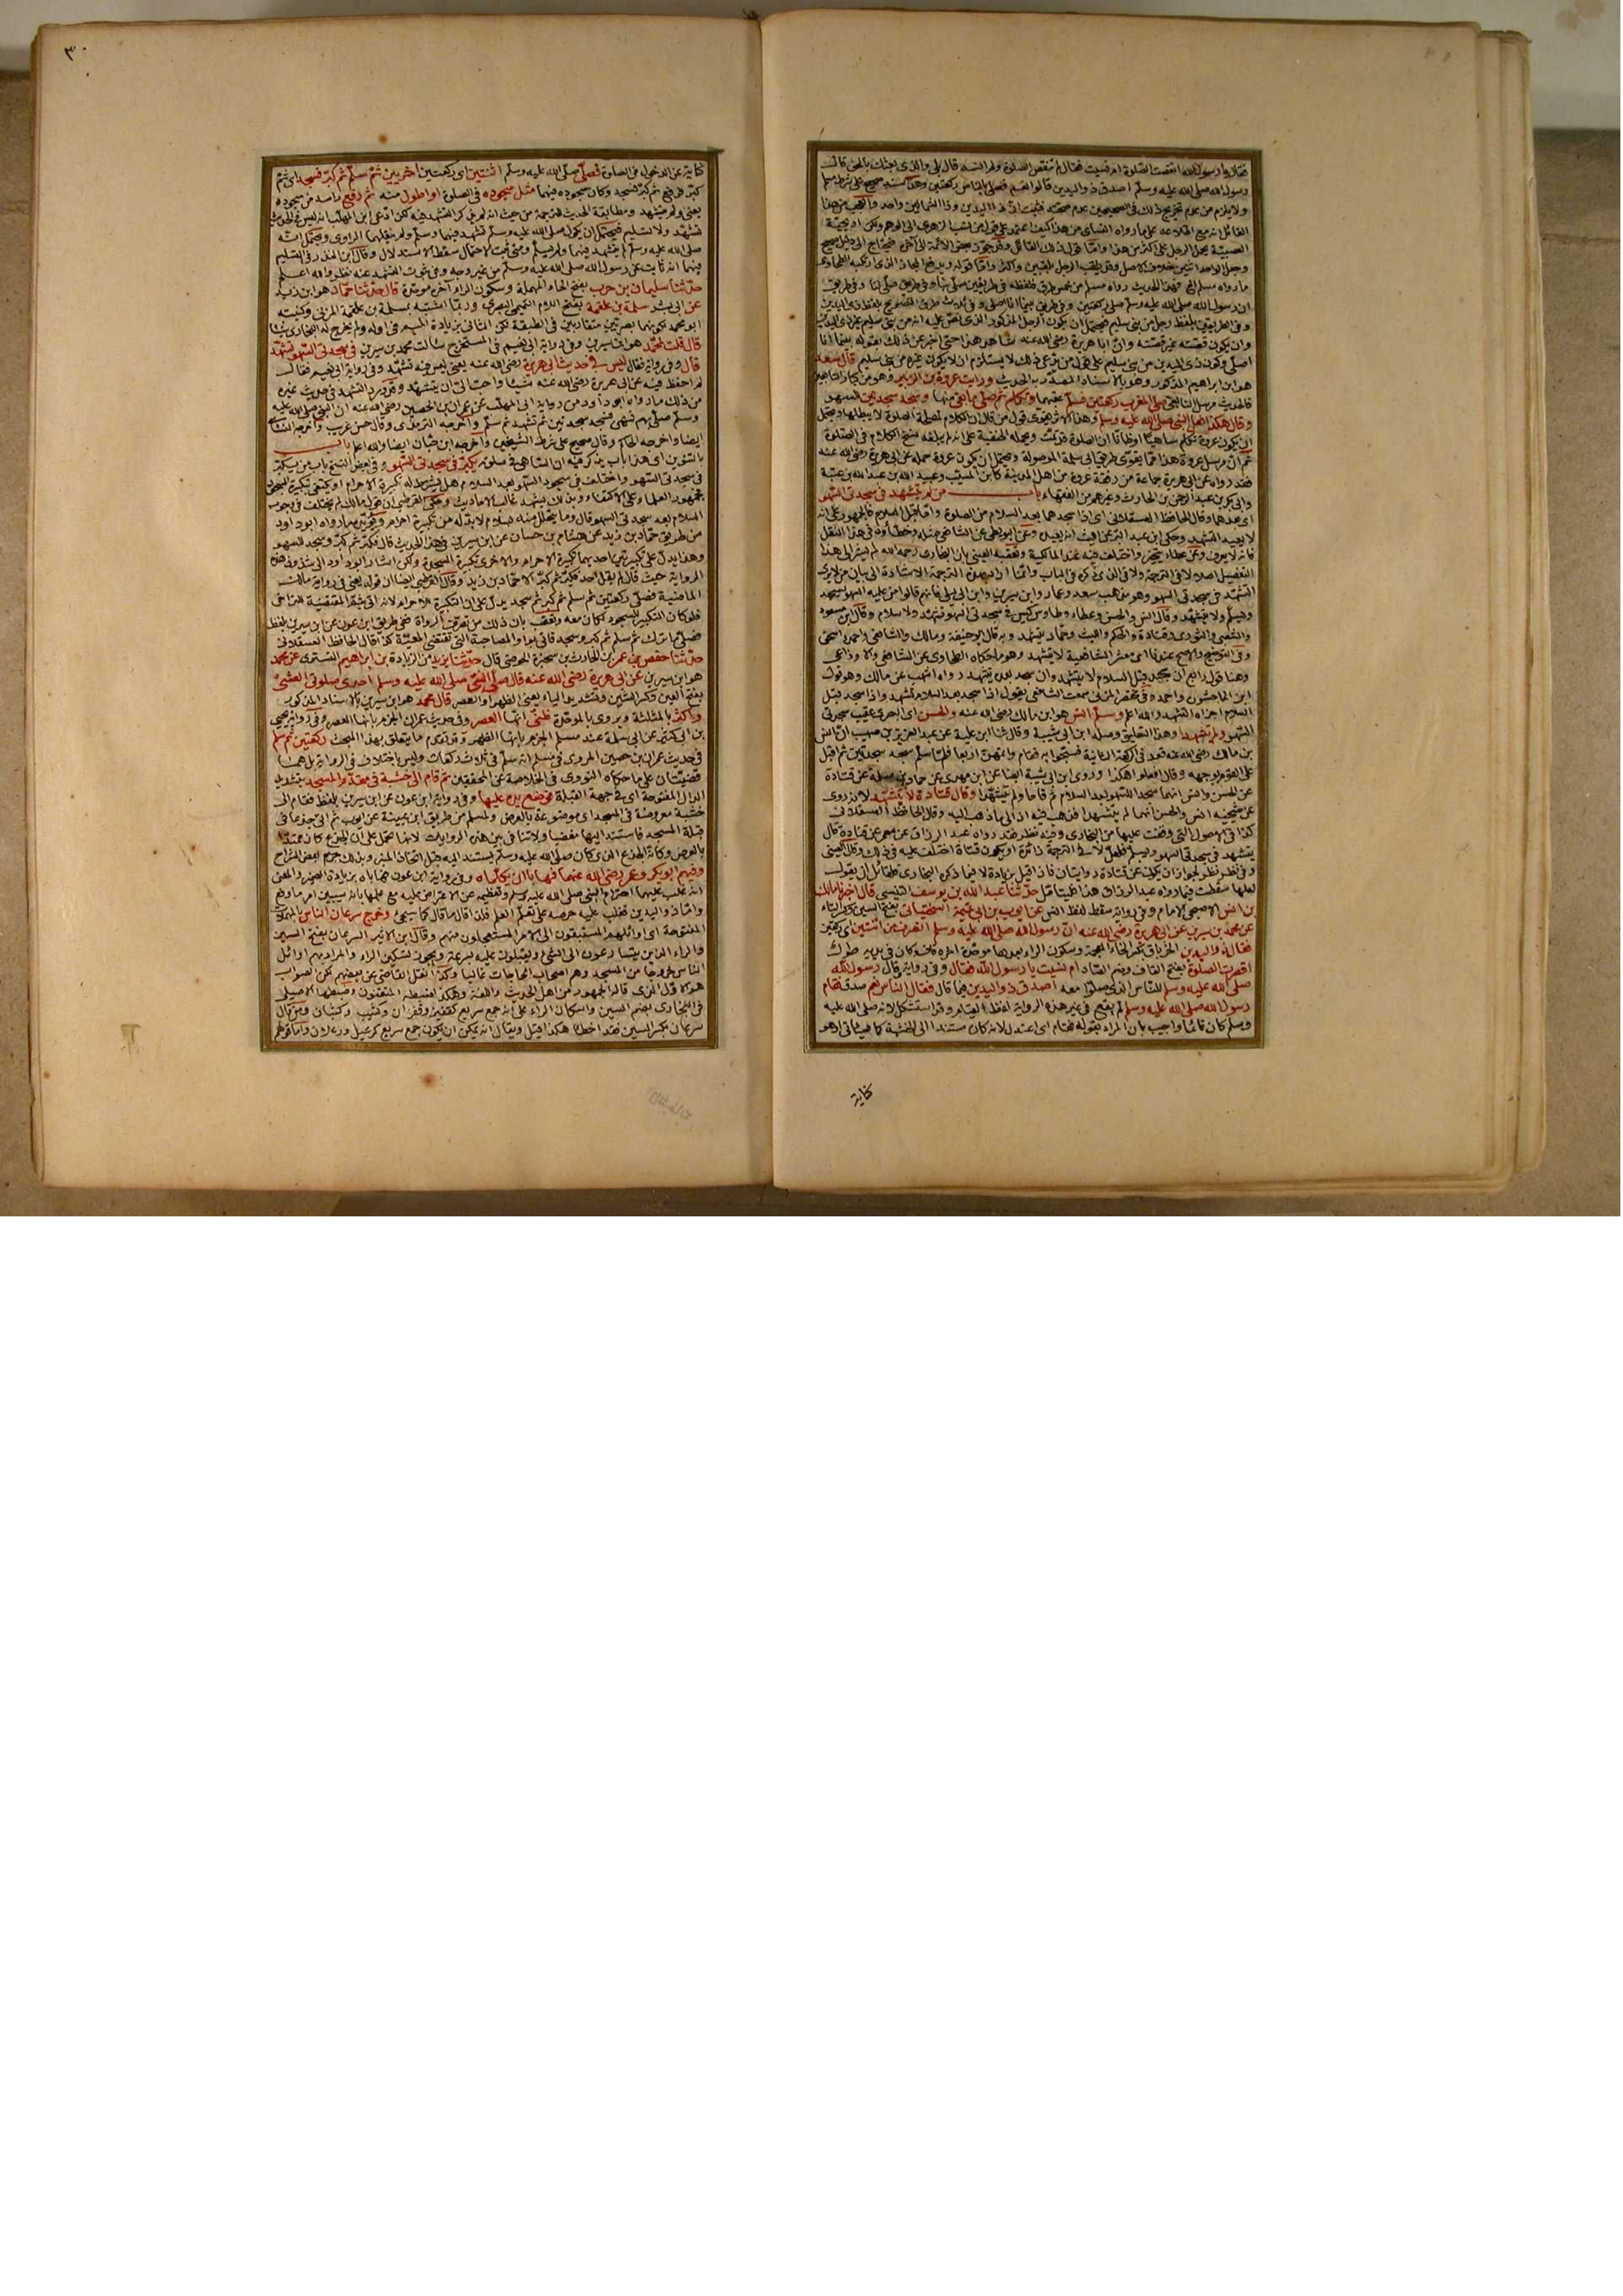 فقال يا رسول الله انقصت الصلوة ام نسيت فقال لم تنقص الصلوة ولم انسه قال بلى والذى بعثك بالحق قال
رسول الله صلى الله عليه وسلم اصدق ذو اليدين قالوا نعم فصلى بالناس ركعتين وهذا سند صحيح على شرط مسلم
ولا يلزم من عدم تخريج ذلك فى الصحيحين عدم صحته فثبت ان ذا اليدين وذا الشمالين واحد والعجب من هذا
القائل انه مع اطلاعه على ما رواه النسائى من هذا كيف اعتمد على قول من نسب الزهرى الى الوهم ولكن اريحية
العصبية يحمل الرجل على اكثر من هذا
ان رسول الله صلى الله عليه وسلم صلى ركعتين وفى طريق بينا انا اصلى
وفى طريق بلفظ رجل من بنى سليم فيحتمل ان يكون الرجل المذكور الذى نص عليه انه من بنى سليم غير ذى اليدين
وان يكون قصته غير قصته وان ابا هريرة رضى الله عنه شاهد هذا حتى اخبر عن ذلك بقوله بينما انا
اصلى وكون ذى اليدين من بنى سليم على قول من يدعى ذلك لا يستلزم ان لا يكون غيره من بنى سليم قال سعد
هو ابن ابراهيم المذكور وهو بالاسناد المصدر به الحديث ورايت عروة بن الزبير وهو من كبار التابعين
فالحديث مرسل التابعى صلى المغرب ركعتين فسلم عقبهما وتكلم ثم صلى ما بقى منها وسجد سجدتين للسهو
وقال هكذا فعل النبى صلى الله عليه وسلم وهذا الاثر يقوى قول من قال ان الكلام لمصلحة الصلوة لا يبطلها ويحتمل
ان يكون عروة تكلم ساهيا او ظانا ان الصلوة قد تمت ويحمله الحنفية على انه لم يبلغه نسخ الكلام فى الصلوة
ثم ان مرسل عروة هذا مما يقوى طريق ابى سلمة الموصولة ويحتمل ان يكون عروة حمله عن ابى هريرة رضى الله عنه
فقد رواه عن ابى هريرة جماعة من رفقة عروة من اهل المدينة كابن المسيب وعبيد الله بن عبد الله بن عتبة
وابى بكر بن عبد الرحمن بن الحارث وغيرهم من الفقهاء باب من لم يتشهد فى سجدتى السهو
اى بعدهما وقال الحافظ العسقلانى اى اذا سجدهما بعد السلام من الصلوة واما قبل السلام فالجمهور على انه
لا يعيد التشهد وحكى ابن عبد البر عن الليث انه يعيد وعن البويطى عن الشافعى مثله وخطاوه فى هذا النقل
فانه لا يعرف وعن عطاء يتخير واختلف فيه عند المالكية وتعقبه العينى بان البخارى رحمه الله لم يشر الى هذا
التفصيل اصلا لا فى الترجمة ولا فى الذى ذكره فى الباب وانما اراد بهذه الترجمة الاشارة الى بيان من لا يرى
التشهد فى سجدتى السهو وهو مذهب سعد وعمار وابن سيرين وابن ابى ليلى فانهم قالوا من عليه السهو يسجد
ويسلم ولا يتشهد وقال انس والحسن وعطاء وطاوس ليس فى سجدتى السهو تشهد ولا سلام وقال ابن مسعود
والشعبى والثورى وقتادة والحكم والليث وحماد يتشهد وبه قال ابو حنيفة ومالك والشافعى واحمد واسحق
وفى التوضيح والاصح عندنا اى معشر الشافعية لا يتشهد وهو ما حكاه الطحاوى عن الشافعى والاوزاعى
وهنا قول رابع ان سجد قبل السلام لا يتشهد وان سجد بعده يتشهد رواه اشهب عن مالك وهو قول
ابن الماجشون واحمد وفى مختصر المزنى سمعت الشافعى يقول اذا سجد بعد السلام تشهد واذا سجد قبل
السلام اجزاه التشهد والله اعلم وسلم انس هو ابن مالك رضى الله عنه والحسن اى البصرى عقيب سجدتى
السهو ولم يتشهدا وهذا التعليق وصله ابن ابى شيبة وقال ثنا ابن علية عن عبد العزيز بن صهيب ان انس
بن مالك رضى الله عنه قعد فى الركعة الثانية فسبحوا به فقام واتمهن اربعا فلما سلم سجد سجدتين ثم اقبل
على القوم بوجهه وقال افعلوا هكذا وروى ابن ابى شيبة ايضا عن ابن مهدى عن حماد بن سلمة عن قتادة
عن الحسن وانس انهما سجدا للسهو بعد السلام ثم قاما ولم يتشهدا وقال قتادة لا يتشهد لانه روى
عن شيخيه انس والحسن انهما لم يتشهدا فذهب فيه الى ما ذهبا اليه وقال الحافظ العسقلانى
كذا فى الاصول التى وقفت عليها من البخارى وفيه نظر فقد رواه عبد الرزاق عن معمر عن قتادة قال
يتشهد فى سجدتى السهو ويسلم فلعل لا فى الترجمة زائدة او يكون قتادة اختلف عليه فى ذلك وقال العينى
وفى نظره نظر لجواز ان يكون عن قتادة روايتان فان قيل بزيادة لا فيما ذكره البخارى فلقائل ان يقول
لعلها سقطت فيما رواه عبد الرزاق هذا حدثنا عبد الله بن يوسف التنيسى قال اخبرنا مالك
بن انس الاصبحى الامام وفى رواية سقط لفظ انس عن ايوب بن ابى تميمة السختيانى بفتح السين وكسر التاء
عن محمد بن سيرين عن ابى هريرة رضى الله عنه ان رسول الله صلى الله عليه وسلم انصرف من اثنتين اى ركعتين
فقال له ذو اليدين الخرباق بكسر الخاء المعجمة وسكون الراء بعدها موحدة اخره قاف وكان فى يديه طول
اقصرت الصلوة بفتح القاف وضم الصاد ام نسيت يا رسول الله فقال وفى رواية قال رسول الله
صلى الله عليه وسلم للناس الذى صلوا معه اصدق ذو اليدين فيما قال فقال الناس نعم صدق فقام
رسول الله صلى الله عليه وسلم لم يقع فى غير هذه الرواية لفظ القيام وقد استشكل لانه صلى الله عليه
وسلم كان قائما واجيب بان المراد بقوله فقام اى اعتدل لانه كان مستندا الى الخشبة كما سياتى او هو
كناية
٣٠
كناية عن الدخول فى الصلوة فصلى صلى الله عليه وسلم اثنتين اى ركعتين اخريين ثم سلم ثم كبر فسجد اى ثم
كبر ثم رفع ثم كبر فسجد وكان سجوده فيهما مثل سجوده فى الصلوة او اطول منه ثم رفع راسه من سجوده
يعنى ولم يتشهد ومطابقة الحديث للترجمة من حيث انه لم يذكر التشهد فيه لكن ادعى ابن المهلب انه ليس فى الحديث
تشهد ولا تسليم فيحتمل ان يكون صلى الله عليه وسلم تشهد فيهما وسلم ولم ينقلهما الراوى ويحتمل انه
صلى الله عليه وسلم لم يتشهد فيهما ولم يسلم ومتى ثبت الاحتمال سقط الاستدلال وقال ابن المنذر فى التسليم
فيهما انه ثابت عن رسول الله صلى الله عليه وسلم من غير وجه وفى ثبوت التشهد عنه نظر والله اعلم
حدثنا سليمان بن حرب بفتح الحاء المهملة وسكون الراء اخره موحدة قال حدثنا حماد هو ابن زيد
عن سلمة بن علقمة بفتح اللام التميمى البصرى وربما اشتبه بمسلمة بن علقمة المزنى وكنيته
ابو محمد لكونهما بصريين متقاربين فى الطبقة لكن الثانى بزيادة الميم فى اوله ولم يخرج له البخارى شيئا
قال قلت لمحمد هو ابن سيرين وفى رواية ابى نعيم فى المستخرج سالت محمد بن سيرين فى سجدتى السهو تشهد
قال وفى رواية فقال ليس فى حديث ابى هريرة رضى الله عنه يعنى ليس فيه تشهد وفى رواية ابى نعيم فقال
لم احفظ فيه عن ابى هريرة رضى الله عنه شيئا واحب الى ان يتشهد وقد ورد التشهد فى حديث غيره
من ذلك ما رواه ابو داود من رواية ابى المهلب عن عمران بن الحصين رضى الله عنه ان النبى صلى الله عليه
وسلم صلى بهم فسهى فسجد سجدتين ثم تشهد ثم سلم واخرجه الترمذى وقال حسن غريب واخرجه النسائى
ايضا واخرجه الحاكم وقال صحيح على شرط الشيخين واخرجه ابن حبان ايضا والله اعلم باب
بالتنوين اى هذا باب يذكر فيه ان الساهى فى صلوته يكبر فى سجدتى السهو وفى بعض النسخ باب من يكبر
فى سجدتى السهو واختلف فى سجود السهو بعد السلام هل يشترط له تكبيرة الاحرام او يكتفى بتكبيرة السجود
فجمهور العلماء على الاكتفاء وبذلك يشهد غالب الاحاديث وحكى القرطبى ان قول مالك لم يختلف فى وجوب
السلام بعد سجدتى السهو قال وما يتحلل منه بسلام لا بد له من تكبيرة احرام ويؤيده ما رواه ابو داود
من طريق حماد بن زيد عن هشام بن حسان عن ابن سيرين فى هذا الحديث قال فكبر ثم كبر وسجد للسهو
وهذا يدل على تكبيرتين احديهما تكبيرة الاحرام والاخرى تكبيرة السجدة ولكن اشار ابو داود الى شذوذ هذه
الرواية حيث قال لم يقل احد فكبر ثم كبر الا حماد بن زيد وقال القرطبى ايضا ان قوله يعنى فى رواية مالك
الماضية فصلى ركعتين ثم سلم ثم كبر ثم سجد يدل على ان التكبيرة للاحرام لانه اتى بثم المقتضية للتراخى
فلو كان التكبير للسجود لكان معه وتعقب بان ذلك من تصرف الرواة ففى طريق ابن عون عن ابن سيرين بلفظ
فصلى ما ترك ثم سلم ثم كبر وسجد فاتى بواو المصاحبة التى تقتضى المعية كذا قال الحافظ العسقلانى
حدثنا حفص بن عمر بن الحارث بن سخبرة الحوضى قال حدثنا يزيد من الزيادة بن ابراهيم التسترى عن محمد
هو ابن سيرين عن ابى هريرة رضى الله عنه قال صلى النبى صلى الله عليه وسلم احدى صلوتى العشى
بفتح العين وكسر الشين وتشديد الياء يعنى الظهر او العصر قال محمد هو ابن سيرين بالاسناد المذكور
واكثر بالمثلثة ويروى بالموحدة ظنى انها العصر وفى حديث عمران الجزم بانها العصر وفى رواية يحيى
بن ابى كثير عن ابى سلمة عند مسلم الجزم بانها الظهر وقد تقدم ما يتعلق بهذا المبحث ركعتين ثم سلم
فى حديث عمران بن حصين المروى فى مسلم انه سلم فى ثلاث ركعات وليس باختلاف فى الرواية بل هما
قضيتان على ما حكاه النووى فى الخلاصة عن المحققين ثم قام الى خشبة فى مقدم المسجد بتشديد
الدال المفتوحة اى فى جهة القبلة فوضع يده عليها وفى رواية ابن عون عن ابن سيرين بلفظ فقام الى
خشبة معروضة فى المسجد اى موضوعة بالعرض ولمسلم من طريق ابن عيينة عن ايوب ثم اتى جذعا فى
قبلة المسجد فاستند اليها مغضبا ولا تنافى بين هذه الروايات لانها تحمل على ان الجذع كان ممتدا
بالعرض وكانه الجذع الذى كان صلى الله عليه وسلم يستند اليه قبل اتخاذ المنبر وبذلك جزم بعض الشراح
وفيهم ابو بكر وعمر رضى الله عنهما فهابا ان يكلماه وفى رواية ابن عون فهاباه بزيادة الضمير والمعنى
انه غلب عليهما احترام النبى صلى الله عليه وسلم وتعظيمه عن الاعتراض عليه مع علمهما بانه سيبين امر ما وقع
واما ذو اليدين فغلب عليه حرصه على تعلم العلم فلذا قال ما قال كما سيجئ وخرج سرعان الناس بالمهملات
المفتوحة اى اوائلهم المستبقون الى الامر المستعجلون منهم وقال ابن الاثير السرعان بفتح السين
والراء الذين يتسارعون الى الشئ ويقبلون عليه بسرعة ويجوز تسكين الراء والمراد بهم اوائل
الناس خروجا من المسجد وهم اصحاب الحاجات غالبا وكذا نقل القاضى عن بعضهم لكن الصواب
هو الاول الذى قاله الجمهور من اهل الحديث واللغة وهكذا ضبطه المتقنون وضبطها الاصيلى
فى البخارى بضم السين واسكان الراء على انه جمع سريع كقفيز وقفزان وكثيب وكثبان ومن قال
سرعان بكسر السين فقد اخطا هكذا قيل ويقال انه يمكن ان يكون جمع سريع كرعيل ورعلان واما قولهم